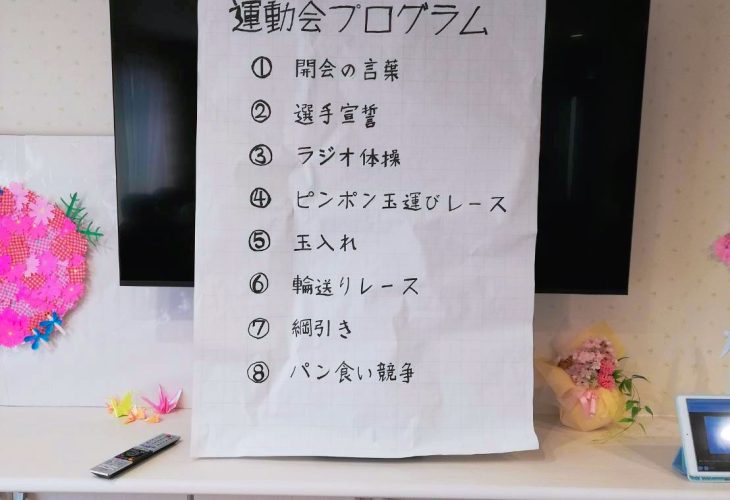 運動会プログラム
① 開会の言葉
② 選手宣誓
③ ラジオ体操
④ ピンポン玉運びレース
⑤ 玉入れ
⑥ 輪送りレース
⑦ 綱引き
⑧ パン食い競争